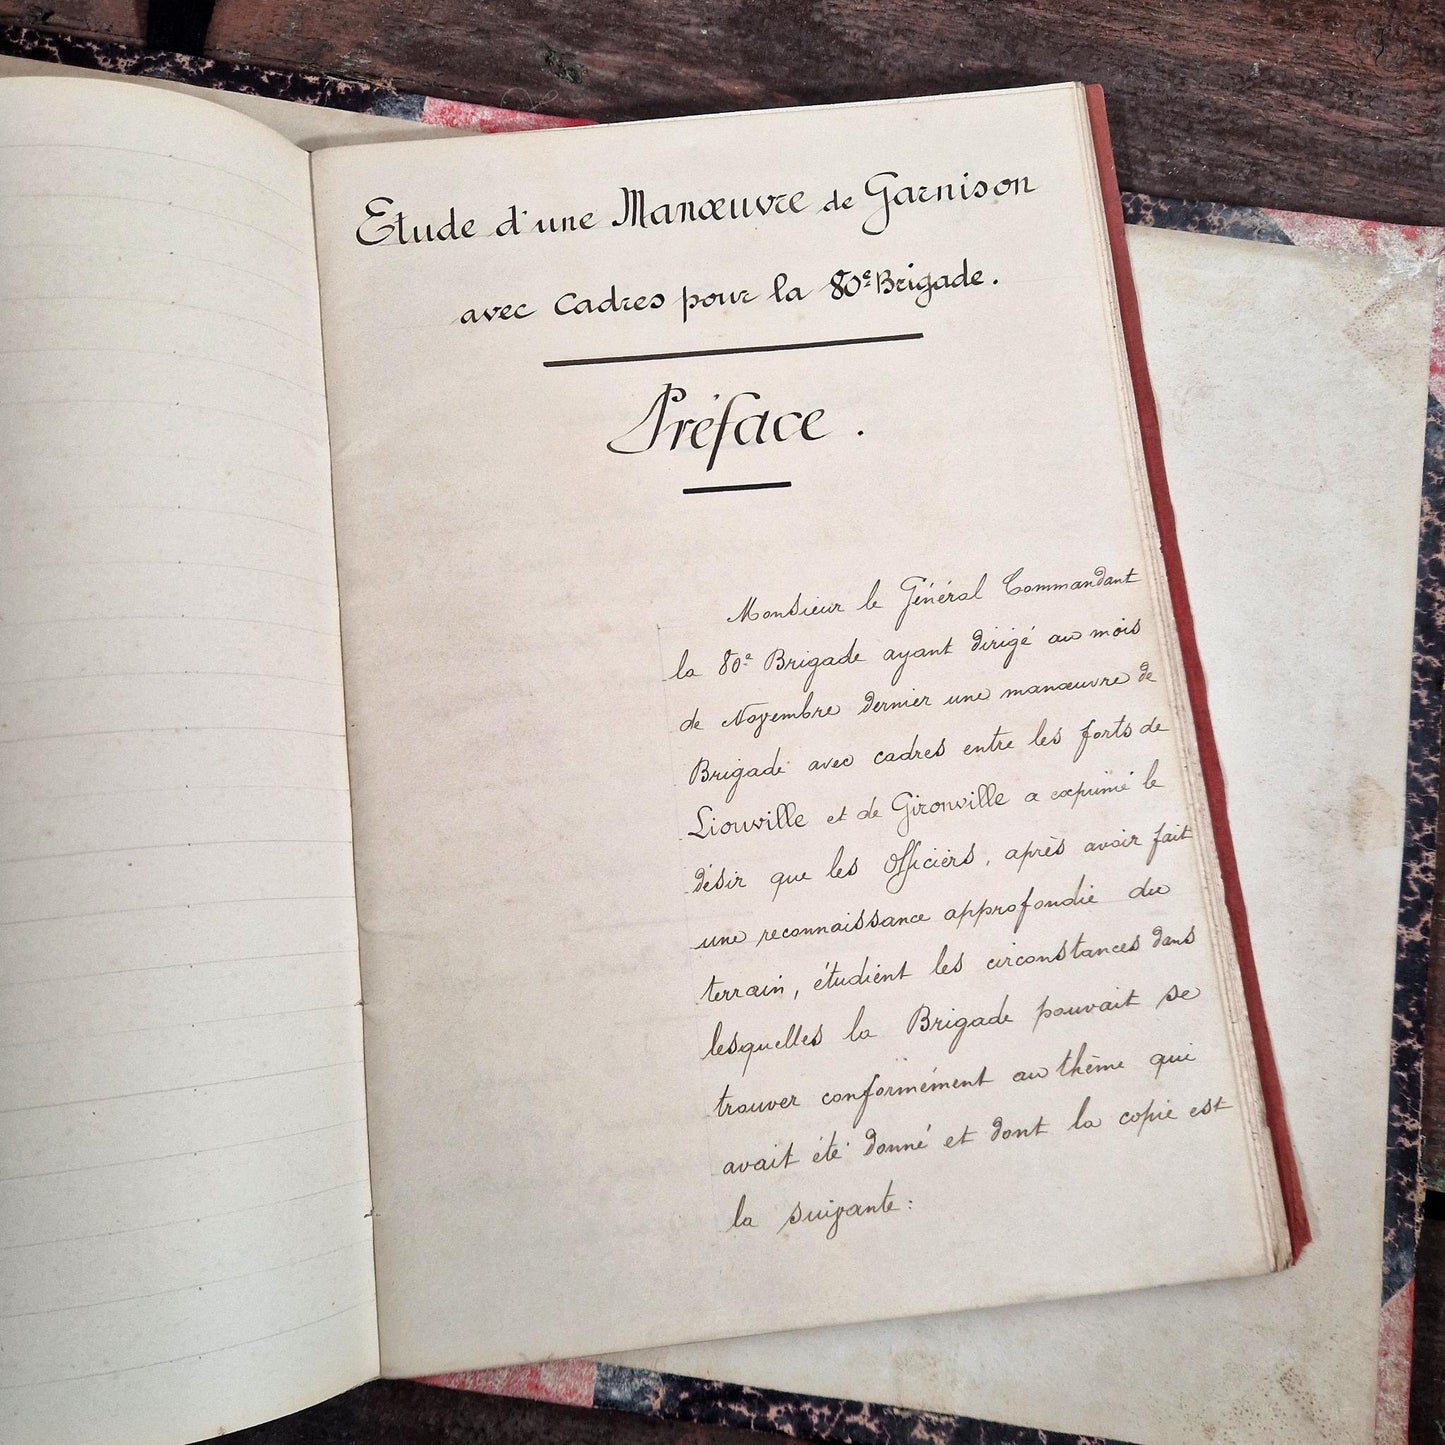 Etude d'une Manœuvre de Garnison
avec Cadres pour la 80e Brigade.
Préface.
Monsieur le Général Commandant
la 80e Brigade ayant dirigé au mois
de Novembre dernier une manœuvre de
Brigade avec cadres entre les forts de
Liouville et de Gironville a exprimé le
désir que les Officiers, après avoir fait
une reconnaissance approfondie du
terrain, étudient les circonstances dans
lesquelles la Brigade pouvait se
trouver conformément au thème qui
avait été donné et dont la copie est
la suivante: